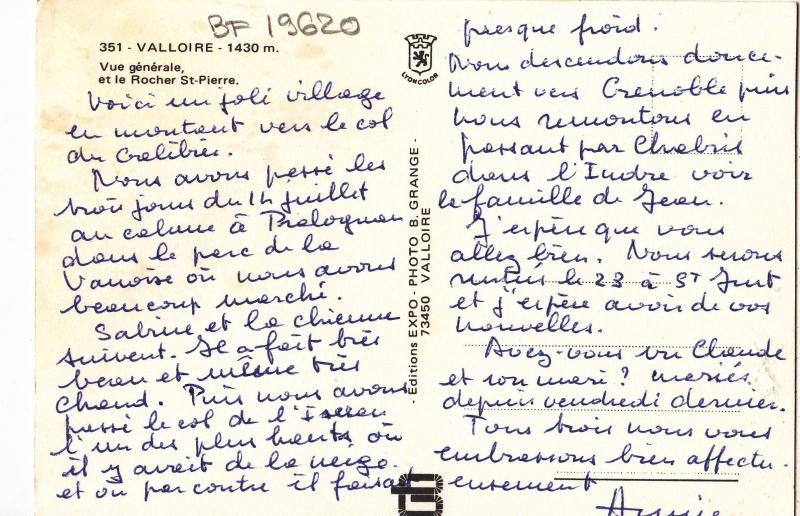 BF 19620
351 - VALLOIRE - 1430 m.
Vue générale,
et le Rocher St-Pierre.
LYONCOLOR
Voici un joli village
en montant vers le col
du Galibier.
Nous avons passé les
trois jours du 14 juillet
au calme à Pralognan
dans le parc de la
Vanoise où nous avons
beaucoup marché.
Sabine et la chienne
suivent. Il a fait très
beau et même très
chaud. Puis nous avons
passé le col de l'Iseran
l'un des plus hauts où
il y avait de la neige.
et où par contre il faisait
- Éditions EXPO - PHOTO B. GRANGE -
73450 VALLOIRE
presque froid.
Nous descendons douce-
ment vers Grenoble puis
nous remontons en
passant par Chabris
dans l'Indre voir
la famille de Jean.
J'espère que vous
allez bien. Nous serons
rentrés le 23 à St Just
et j'espère avoir de vos
nouvelles.
Avez-vous vu Claude
et son mari? mariés
depuis vendredi dernier.
Tous trois nous vous
embrassons bien affectu-
eusement
Annie